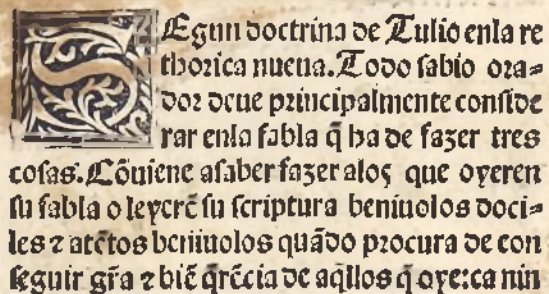 SEgun doctrina de Tulio enla re
thorica nueua. Todo sabio ora=
dor deue principalmente conside
rar enla fabla q̃ ha de fazer tres
cosas. Cõuiene asaber fazer alos que oyeren
su fabla o leyerẽ su scriptura beniuolos doci=
les ⁊ atẽtos beniuolos quãdo procura de con
seguir gr̃a ⁊ biẽ q̃rẽcia de aq̃llos q̃ oyẽ: ca nin